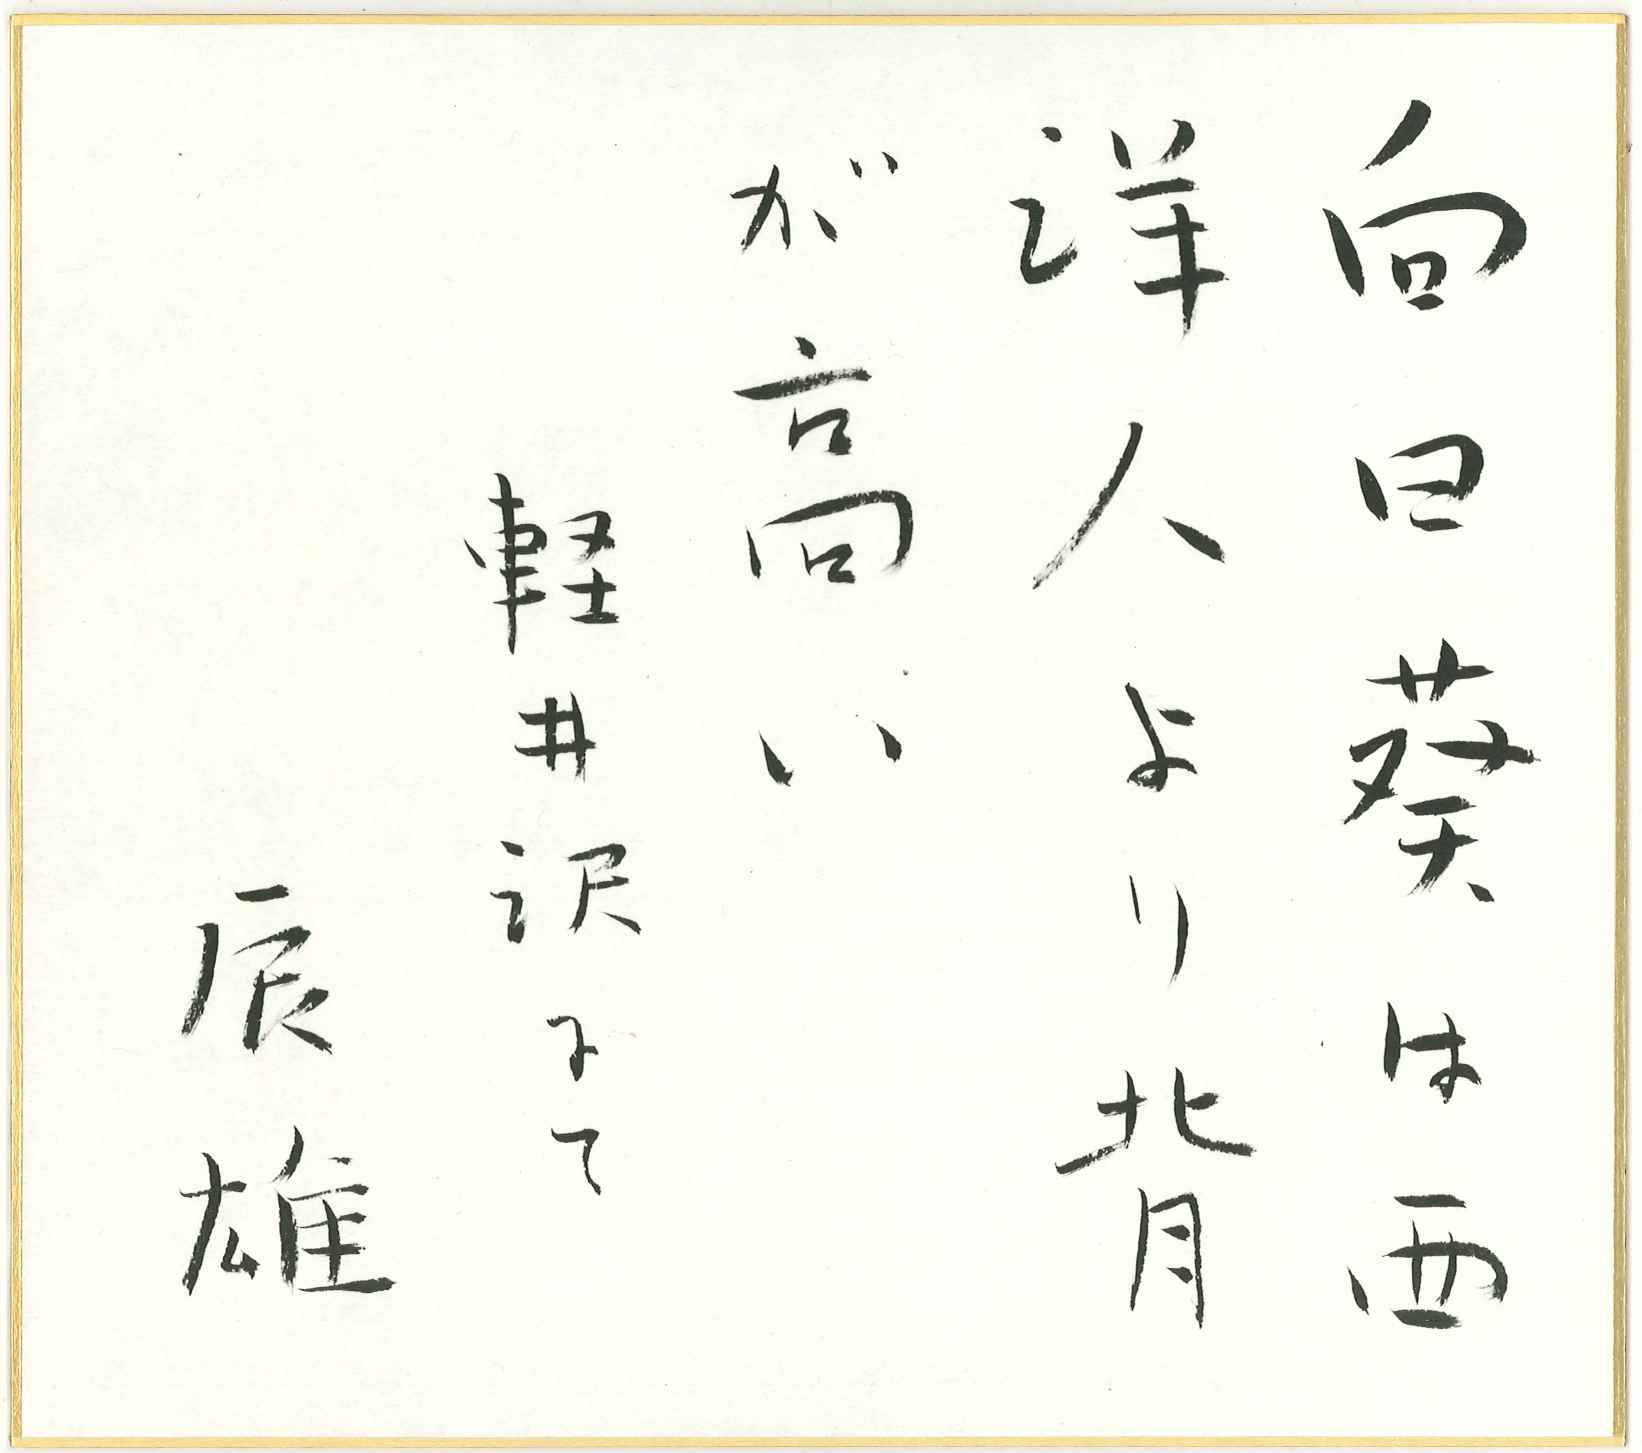 向日葵は西
洋人より背
が高い
軽井沢にて
辰雄